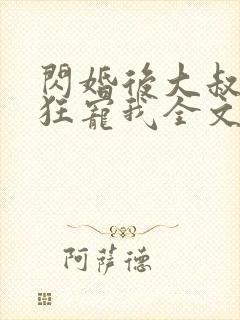 閃婚後大叔
狂寵我全文
阿薩德